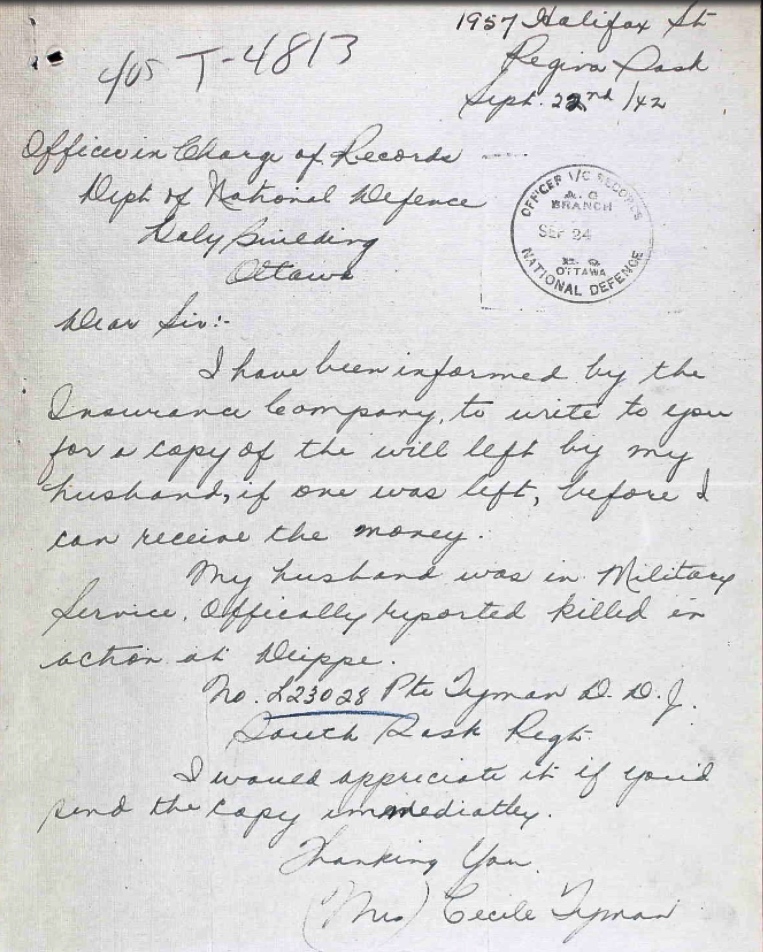 405 T-4813
1957 Halifax St
Regina Sask
Sept. 22nd /42
Officer in Charge of Records
Dept of National Defence
Daly Building
Ottawa
OFFICER I/C RECORDS
A. G
BRANCH
SEP 24
H. Q.
OTTAWA
NATIONAL DEFENCE
Dear Sir:-
I have been informed by the
Insurance Company, to write to you
for a copy of the will left by my
husband, if one was left, before I
can receive the money.
My husband was in Military
Service. Offically reported killed in
action at Dieppe.
No. L23028 Pte Tyman D. D. J.
South Sask Regt.
I would appreciate it if you'd
send the copy immediatley.
Thanking You.
(Mrs) Cecile Tyman